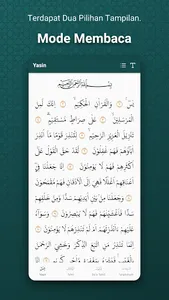 Terdapat Dua Pilihan Tampilan.
Mode Membaca
Yasin
بِسْمِ اللّٰهِ الرَّحْمٰنِ الرَّحِيْمِ
يٰسۤ وَالْقُرْاٰنِ الْحَكِيْمِ اِنَّكَ لَمِنَ
الْمُرْسَلِيْنَ عَلٰى صِرَاطٍ مُّسْتَقِيْمٍ
تَنْزِيْلَ الْعَزِيْزِ الرَّحِيْمِ لِتُنْذِرَ قَوْمًا مَّآ اُنْذِرَ
اٰبَاۤؤُهُمْ فَهُمْ غٰفِلُوْنَ لَقَدْ حَقَّ الْقَوْلُ عَلٰٓى
اَكْثَرِهِمْ فَهُمْ لَا يُؤْمِنُوْنَ اِنَّا جَعَلْنَا فِيْٓ
اَعْنَاقِهِمْ اَغْلٰلًا فَهِيَ اِلَى الْاَذْقَانِ فَهُمْ
مُّقْمَحُوْنَ وَجَعَلْنَا مِنْۢ بَيْنِ اَيْدِيْهِمْ سَدًّا وَّمِنْ
خَلْفِهِمْ سَدًّا فَاَغْشَيْنٰهُمْ فَهُمْ لَا يُبْصِرُوْنَ وَسَوَاۤءٌ
عَلَيْهِمْ ءَاَنْذَرْتَهُمْ اَمْ لَمْ تُنْذِرْهُمْ لَا يُؤْمِنُوْنَ
اِنَّمَا تُنْذِرُ مَنِ اتَّبَعَ الذِّكْرَ وَخَشِيَ الرَّحْمٰنَ